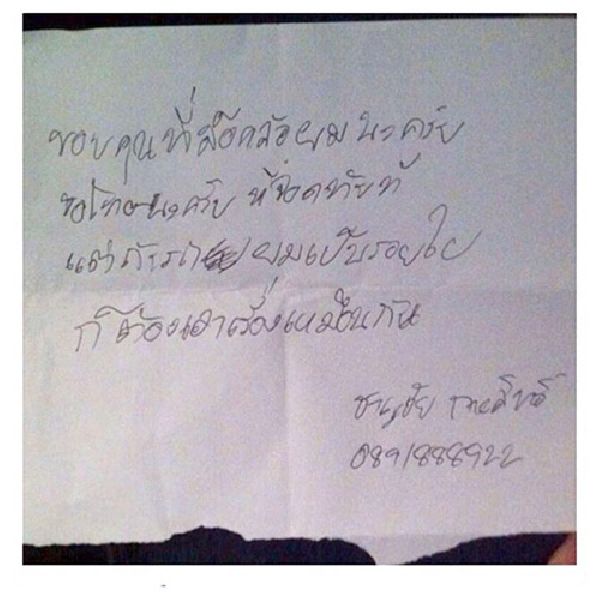 ขอบคุณที่ล๊อคล้อผมนะครับ
ขอโทษนะครับ ที่จอดทับที่
แต่ถ้ารถ ผมเป็นรอยใด
ก็ต้องเอาเรื่องเหมือนกัน
ชาญชัย
0891888922